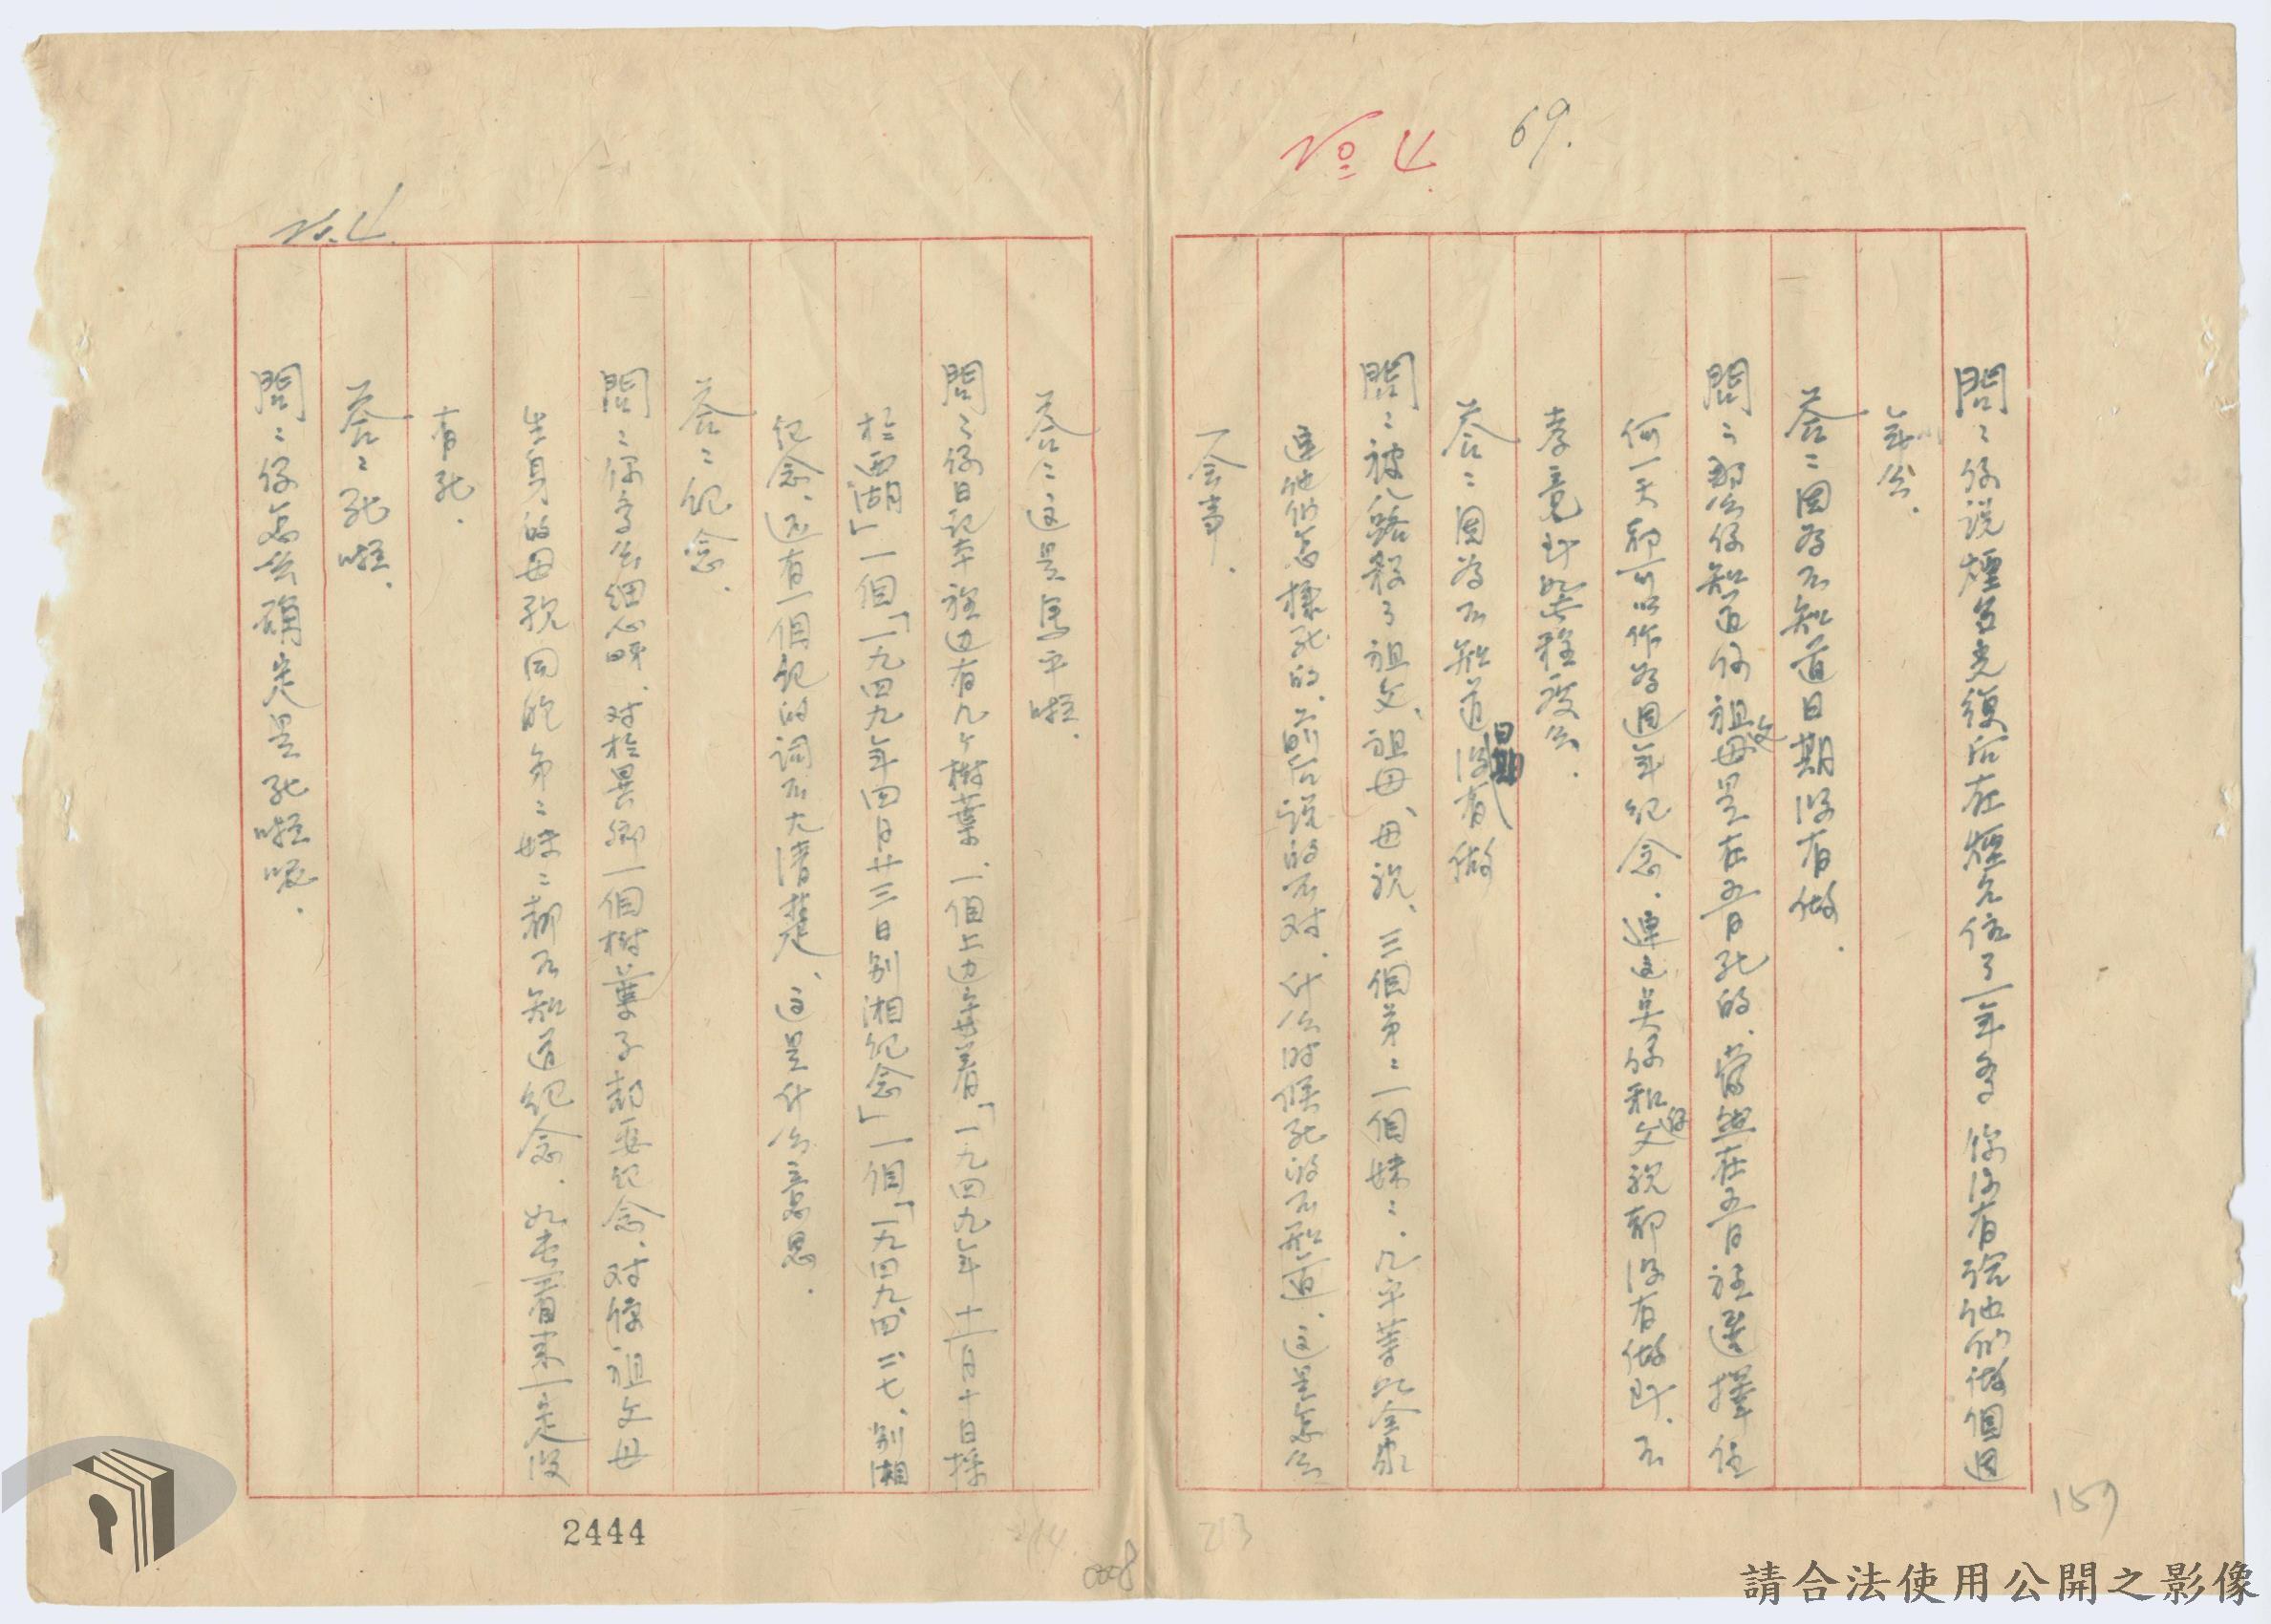 No 4.
69.
問：你說煙台光復后在煙台住了一年多 你沒有說他們做個週
年公.
答：因为不知道日期沒有做.
問：那么你知道你祖父母是在五月死的、當然在五月裡選擇任
何一天都可以作为週年紀念、連這莫你和你父親都沒有做到、不
孝竟到如此程度么.
答：因为不知道日期沒有做
問：被八路殺了祖父、祖母、母親、三個弟：一個妹：、几乎等於全家
連他們怎樣死的、前后說的不对、什么时候死的不知道、這是怎么
一会事.
答：這是馬平啦.
問：你日記本裡边有几个樹葉、一個上边寫着「一九四九年十一月十日採
於西湖」一個「一九四九年四月廿三日别湘紀念」一個「一九四九、四、二七、别湘
紀念、还有一個紀的詞不大清楚、這是什么意思.
答：紀念.
問：你多么細心呀、对於異鄉一個樹葉子都要紀念、对你祖父母
生身的母親同胞弟：妹：都不知道紀念、如此看來一定沒
有死.
答：死啦.
問：你怎么確定是死啦呢.
No. 4.
2444
214
0008
213
157
請合法使用公開之影像